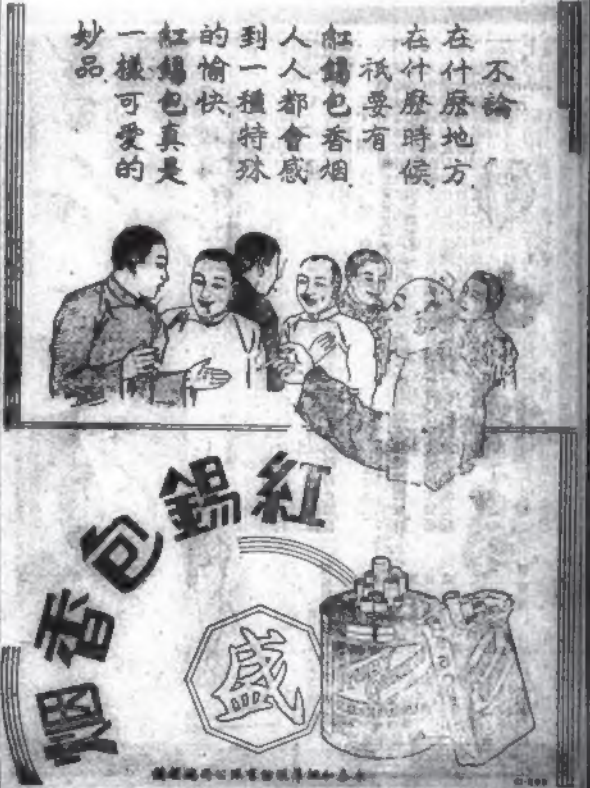 不論
在什麼地方，
在什麼時候，
祇要有
紅錫包香烟，
人人都會感
到一種特殊
的愉快，
紅錫包真是
一樣可愛的
妙品。
紅錫包香烟
盛